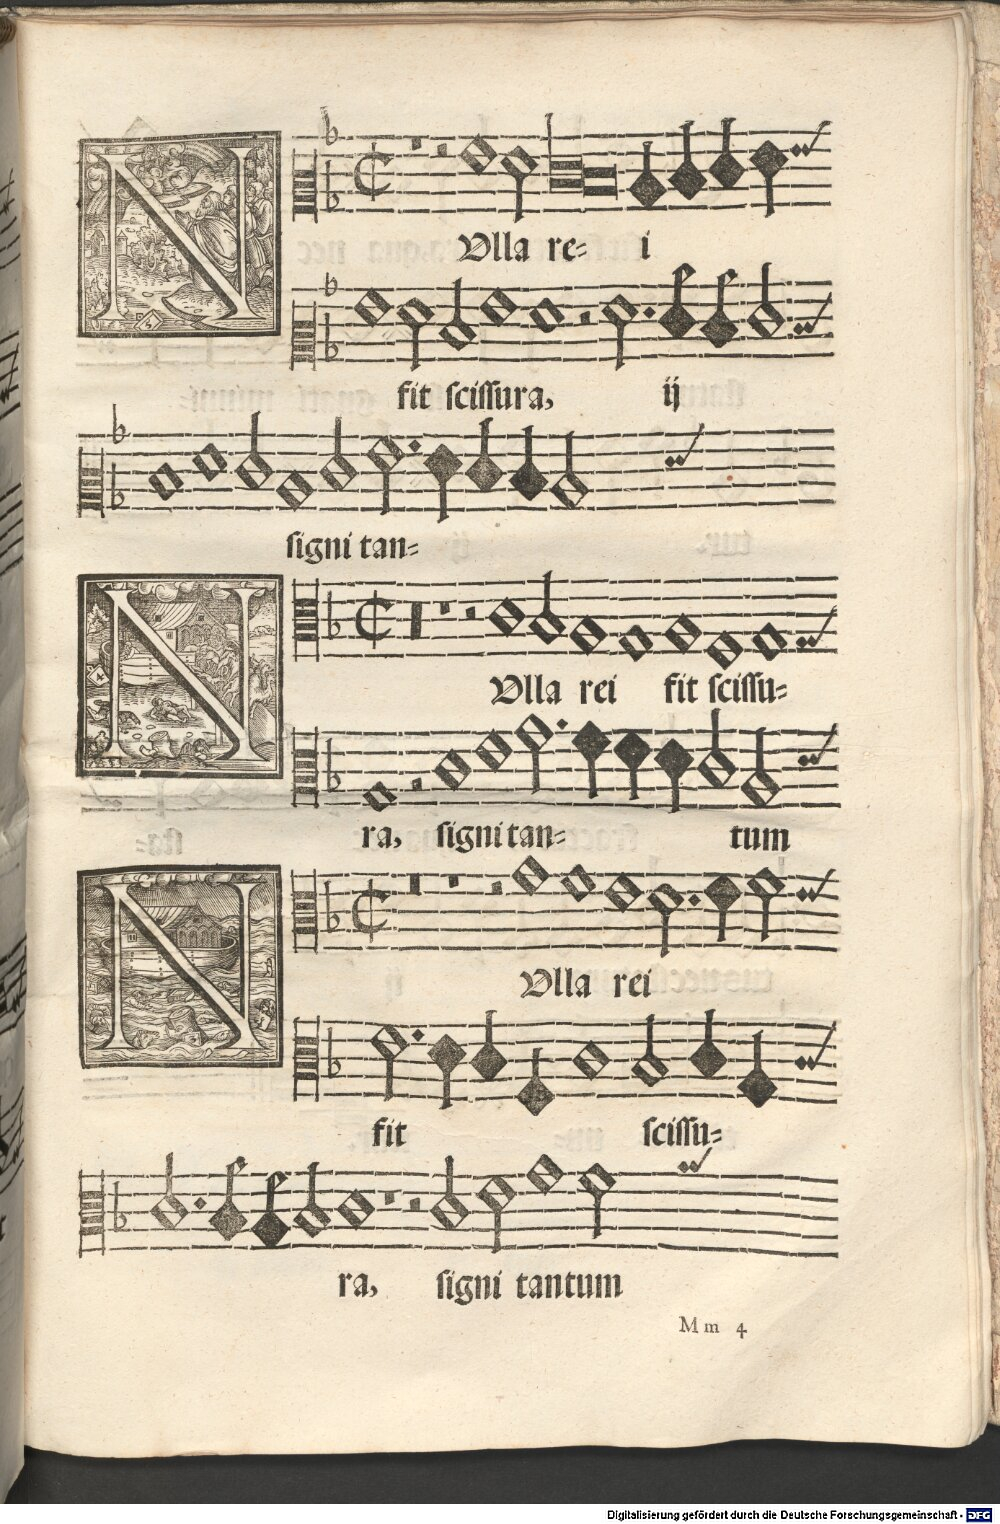 NUlla re- i
fit scissura, ij
signi tan-
NUlla rei fit scissu-
ra, signi tan- tum
NUlla rei
fit scissu-
ra, signi tantum
Mm 4
Digitalisierung gefördert durch die Deutsche Forschungsgemeinschaft - DFG